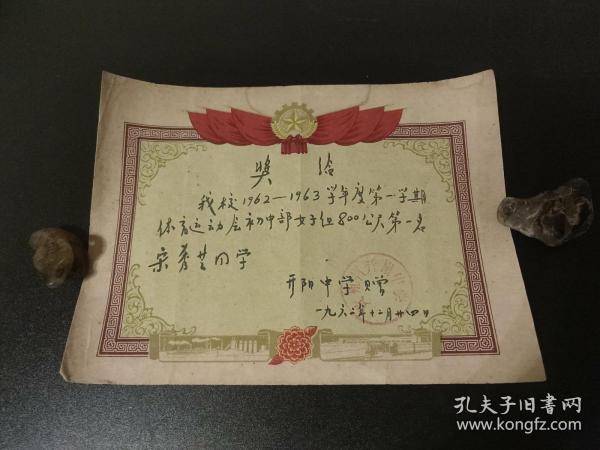 奖给
我校1962—1963学年度第一学期
体育运动会初中部女子组800公尺第一名
宋秀芝同学
开阳中学 赠
一九六二年十二月廿四日
孔夫子旧书网
www.kongfz.com